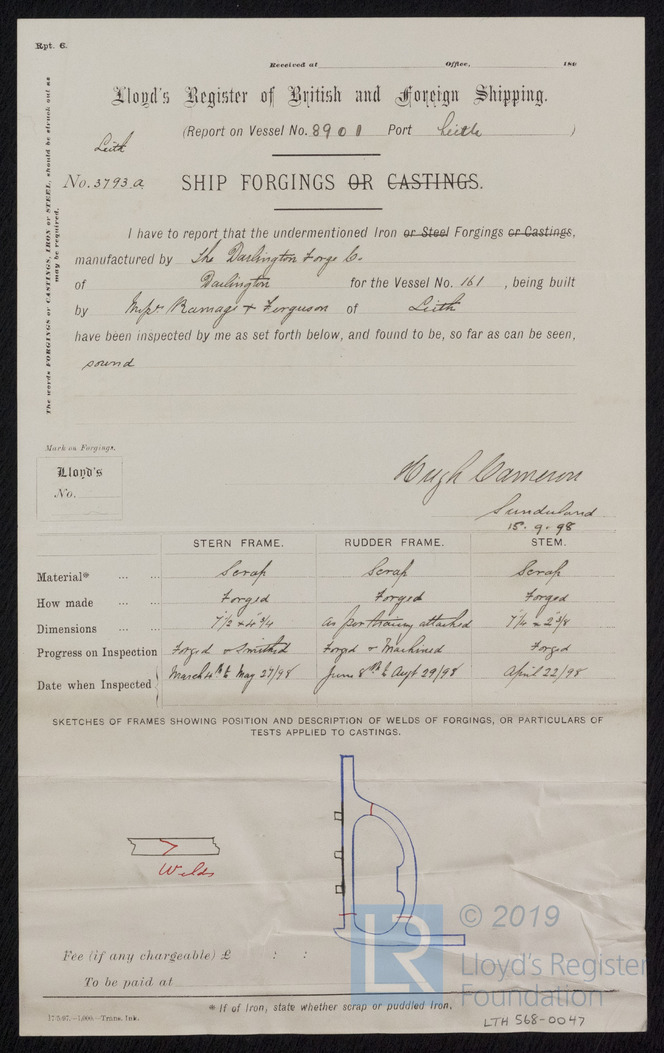 Rpt. 6.
Received at Office, 189
Lloyd's Register of British and Foreign Shipping.
(Report on Vessel No. 8901 Port Leith )
Leith
No. 3793.a
SHIP FORGINGS OR CASTINGS.
The words FORGINGS or CASTINGS, IRON or STEEL, should be struck out as may be required.
I have to report that the undermentioned Iron or Steel Forgings or Castings,
manufactured by The Darlington Forge Co.
of Darlington for the Vessel No. 161 , being built
by Messrs Ramage & Ferguson of Leith
have been inspected by me as set forth below, and found to be, so far as can be seen,
sound
Mark on Forgings.
Lloyd's
No.
Hugh Cameron
Sunderland
15. 9. 98
STERN FRAME. RUDDER FRAME. STEM.
Material* ... ... Scrap Scrap Scrap
How made ... ... Forged Forged Forged
Dimensions ... ... 7 1/2 x 4 3/4 as per tracing attached 7 1/4 x 2 3/8
Progress on Inspection Forged & Smithed Forged & Machined Forged
Date when Inspected March 4th to May 27/98 June 8th to Augt 29/98 April 22/98
SKETCHES OF FRAMES SHOWING POSITION AND DESCRIPTION OF WELDS OF FORGINGS, OR PARTICULARS OF
TESTS APPLIED TO CASTINGS.
Welds
Fee (if any chargeable) £ : :
To be paid at
* If of Iron, state whether scrap or puddled Iron.
17-5-97.—1,000.—Trans. Ink.
LTH 568-0047
LR
© 2019
Lloyd's Register
Foundation